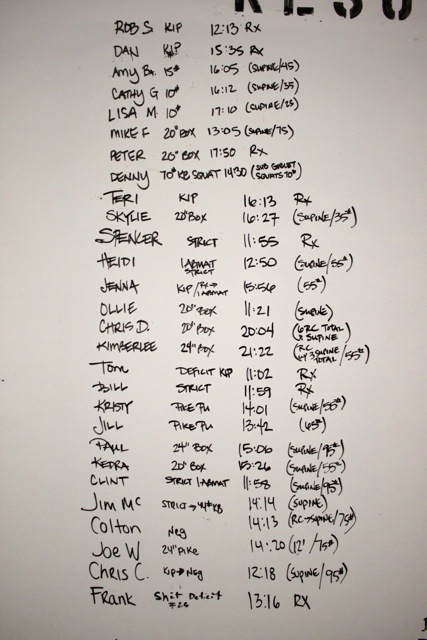 ROB S. KIP 12:13 Rx
DAN KIP 15:35 Rx
AMY BA. 15# 16:05 (SUPINE/45)
CATHY G 10# 16:12 (SUPINE/35)
LISA M. 10# 17:10 (SUPINE/25)
MIKE F 20" BOX 13:05 (SUPINE/75)
PETER 20" BOX 17:50 Rx
DENNY 70# KB SQUAT 14:30 (SUB GOBLET SQUATS 70#)
TERI KIP 16:13 Rx
SKYLIE 20" BOX 16:27 (SUPINE/35#)
SPENCER STRICT 11:55 Rx
HEIDI 1 ABMAT STRICT 12:50 (SUPINE/55#)
JENNA KIP/ → 1 ABMAT 15:56 (55#)
OLLIE 20" BOX 11:21 (SUPINE)
CHRIS D. 20" BOX 20:04 (6 RC TOTAL SUPINE)
KIMBERLEE 24" BOX 21:22 (RC 3 SUPINE TOTAL/55#)
TOM DEFICIT KIP 11:02 Rx
BILL STRICT 11:59 Rx
KRISTY PIKE PU 14:01 (SUPINE/55#)
JILL PIKE PU 13:42 (65#)
PAUL 24" BOX 15:06 (SUPINE/95#)
KEDRA 20" BOX 15:26 (SUPINE/55#)
CLINT STRICT 1 ABMAT 11:58 (SUPINE/95#)
JIM MC STRICT → KB 14:14 (SUPINE)
Colton Neg 14:13 (RC→SUPINE/75#)
Joe W 24" PIKE 14:20 (12'/75#)
CHRIS C. KIP→Neg 12:18 (SUPINE/95#)
Frank Deficit #25 13:16 RX